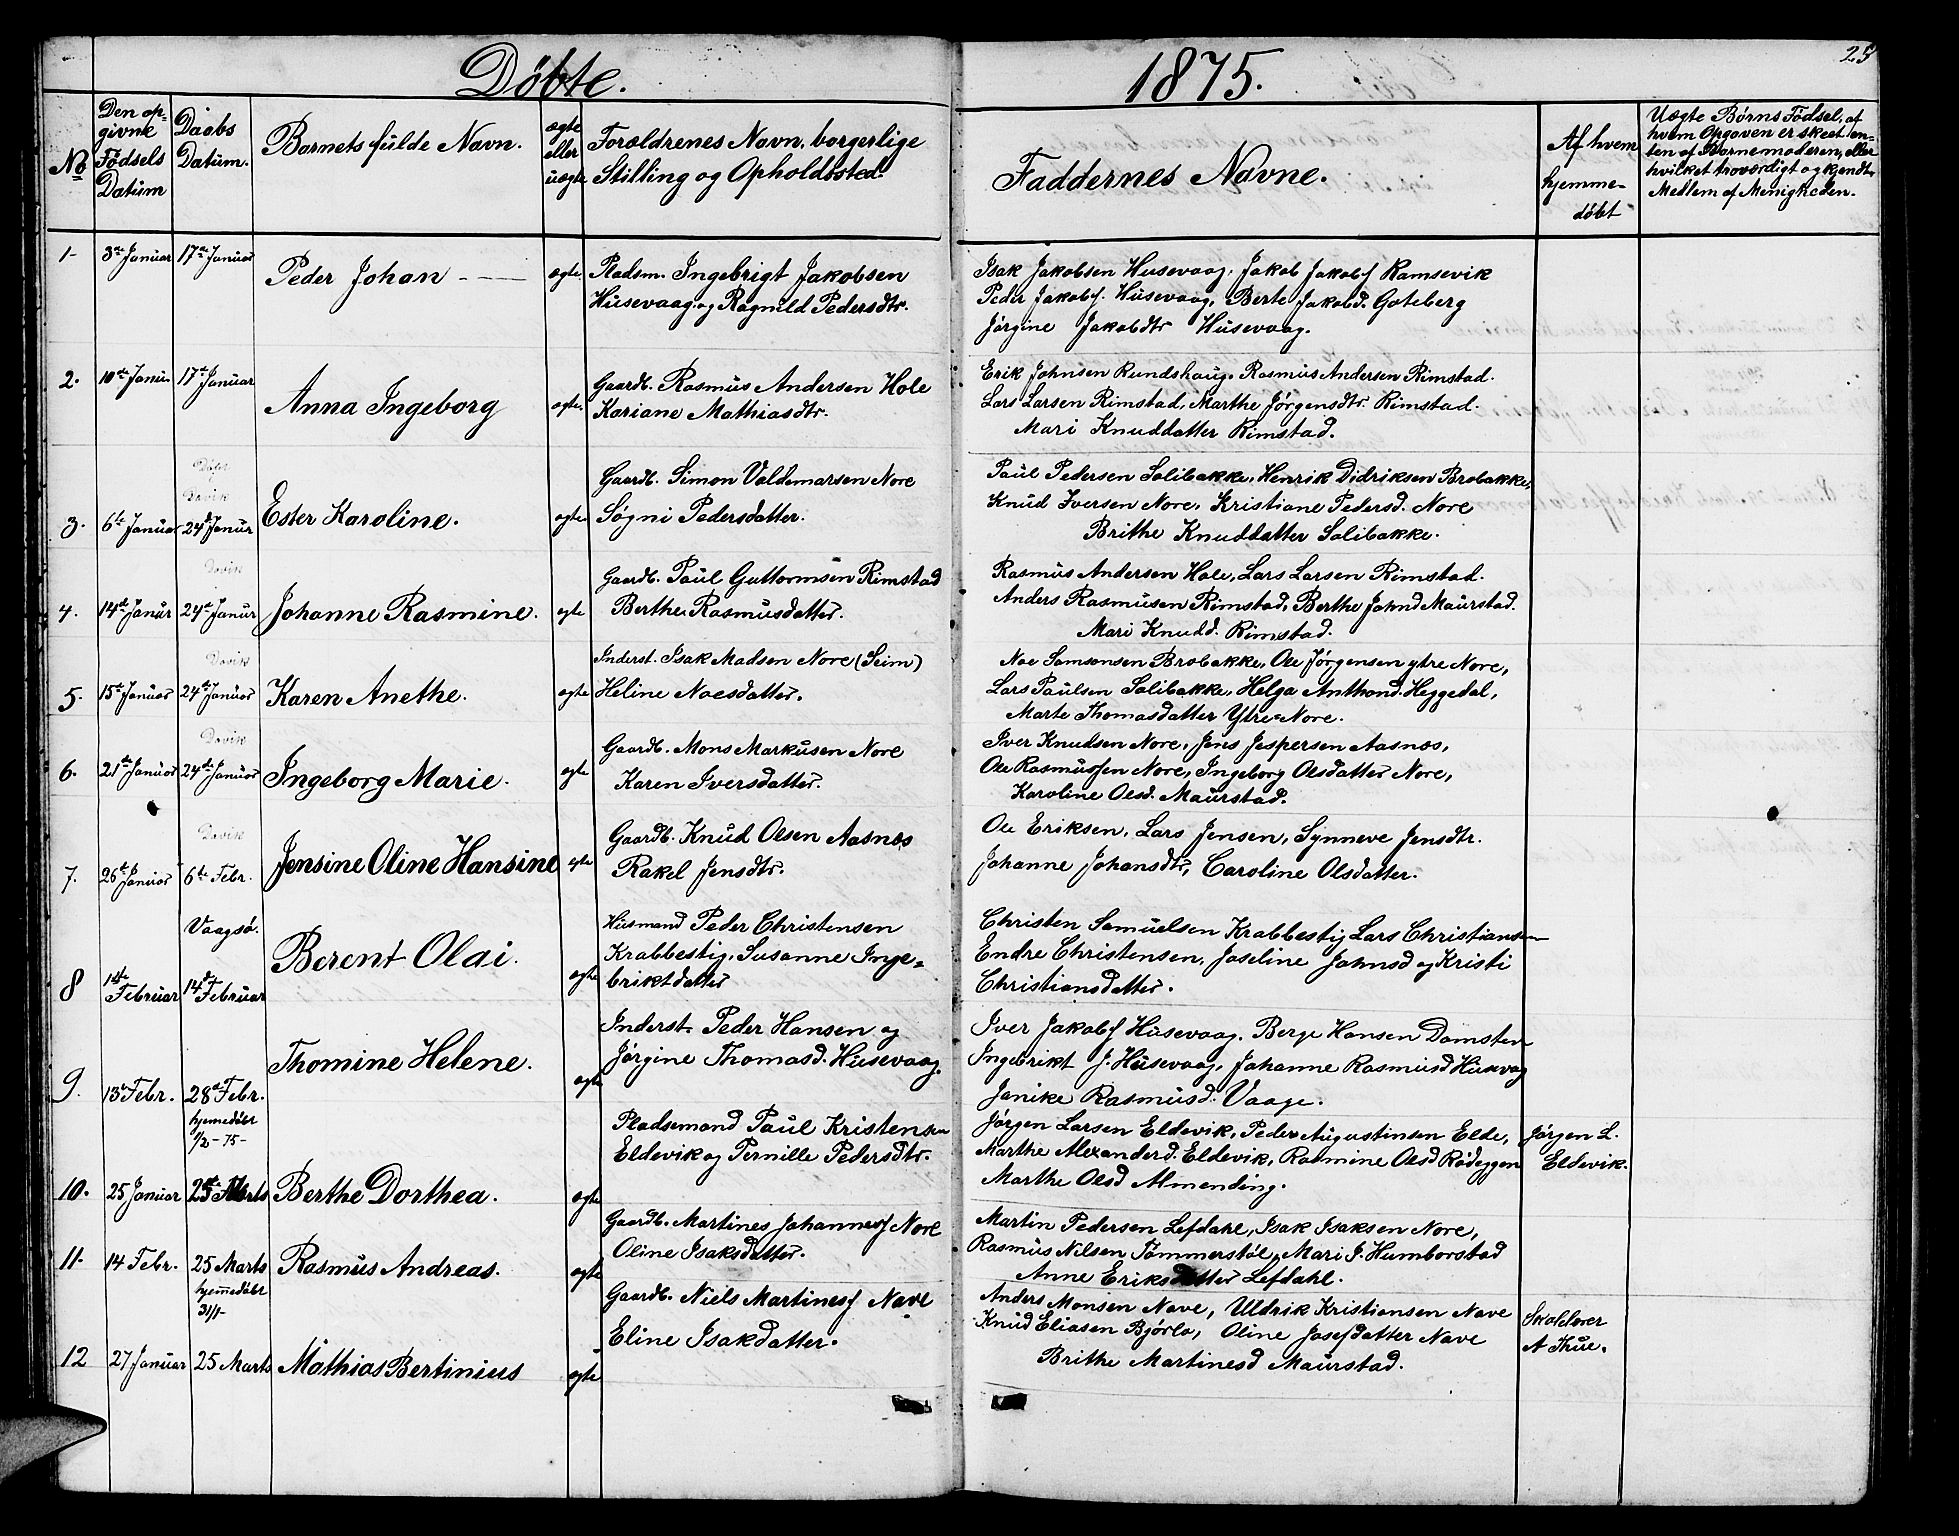 Döbte.
1875.
25
No
Den op-
givne
Fødsels
Datum
Daabs
Datum.
Barnets fulde Navn.
ægte
eller
uægte
Forældrenes Navn, borgerlige
Stilling og Opholdssted.
Faddernes Navne.
Af hvem
hjemme-
döbt
Uægte Børns Fødsel, af
hvem Opgaven er skeet en-
ten af Barnemoderen, eller
hvilket troværdigt og kjendt
Medlem af Menigheden.
1- 3die Januar 17de Januar Peder Johan ægte.
Pladsm. Ingebrigt Jakobsen
Husevaag og Ragnild Pedersdtr.
Isak Jakobsen Husevaag, Jakob Jakobs Ramsevik
Peder Jakobs. Husevaag, Berte Jakobd. Goteberg
Jörgine Jakobdtr Husevaag.
2. 10de Janu. 17d Januar Anna Ingeborg ægte.
Gaardb. Rasmus Andersen Hole
Kariane Mathiasdtr.
Erik Johnsen Rundshaug, Rasmus Andersen Rimstad.
Lars Larsen Rimstad, Marthe Jörgensdtr. Rimstad.
Mari Knuddatter Rimstad.
Davik
3. 6te Januar 24d Janur Ester Karoline. ægte
Gaardb. Simon Valdemarsen Nore
Søgni Pedersdatter.
Paul Pedersen Solibakke, Henrik Didriksen Brobakke,
Knud Iversen Nore, Kristiane Pedersd. Nore
Brithe Knuddatter Solibakke.
Davik
4. 14de Janur 24de Janur Johanne Rasmine. ægte
Gaardb. Paul Guttormsen Rimstad
Berthe Rasmusdatter.
Rasmus Andersen Hole, Lars Larsen Rimstad.
Anders Rasmusen Rimstad, Berthe Johnd Maurstad.
Mari Knudd. Rimstad.
Davik
5. 15de Januar 24de Januar Karen Anethe. ægte
Inderst. Isak Madsen Nore (Seim)
Heline Noesdatter.
Noe Samsonsen Brobakke, Ole Jørgensen ytre Nore,
Lars Paulsen Solibakke, Helga Anthond. Heggedal,
Marte Thomasdatter Ytre Nore.
Davik
6. 21de Januar 24de Januar Ingeborg Marie. ægte
Gaardb. Mons Markusen Nore
Karen Iversdatter.
Iver Knudsen Nore, Jens Jespersen Aasnæs,
Ole Rasmussen Nore, Ingeborg Olsdatter Nore,
Karoline Olsd. Maurstad.
Davik
7. 26de Januar 6te Febr. Jensine Oline Hansine ægte
Gaardb. Knud Olsen Aasnæs
Rakel Jensdtr.
Ole Eriksen, Lars Jensen, Synneve Jensdtr.
Johanne Johansdtr, Caroline Olsdatter.
Vaagsö.
8 1ste Februar 14d Februar Berent Olai. ægte
Husmand Peder Christensen
Krabbestig, Susanne Inge-
briktdatter
Christen Samuelsen Krabbestig Lars Christiansen
Endre Christensen, Joseline Johnsd og Kristi
Christiansdatter.
9. 13 Febr. 28d Febr. Thomine Helene. ægte
Inderst. Peder Hansen og
Jørgine Thomasd. Husevaag.
Iver Jakobs Husevaag, Berge Hansen Domsten
Ingebrikt J. Husevaag, Johanne Rasmusd Husevag
Janike Rasmusd. Vaage.
hjemmedöbt
1/2 - 75 -
10. 25 Januar 25 Marts Berthe Dorthea. ægte
Pladsemand Paul Kristensen
Eldevik og Pernille Pedersdtr.
Jörgen Larsen Eldevik, Peder Augustinsen Elde,
Marthe Alexanderd. Eldevik, Rasmine Olsd Rödeggen
Marthe Olsd Almending.
Jörgen L.
Eldevik.
11. 14 Febr. 25 Marts Rasmus Andreas. ægte
Gaardb. Martines Johanness Nore
Oline Isaksdatter.
Martin Pedersen Lefdahl, Isak Isaksen Nore,
Rasmus Nilsen Tömmerstöl, Mari J. Humborstad
Anne Eriksdatter Lefdahl.
hjemmedöbt
31/1-
12 27 Januar 25 Marts Mathias Bertinius ægte
Gaardb. Niels Martiness Nave
Eline Isakdatter.
Anders Monsen Nave, Uldrik Kristiansen Nave
Knud Eliasen Bjørlo, Oline Josefdatter Nave
Brithe Martinesd Maurstad.
Skolelærer
A Thue.